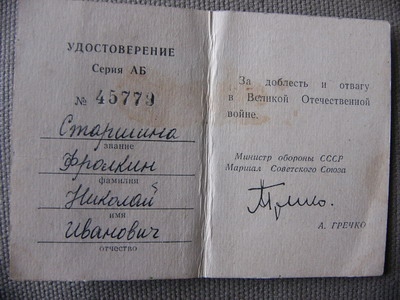 УДОСТОВЕРЕНИЕ
Серия АБ
№ 45779
Старшина
звание
Фролкин
фамилия
Николай
имя
Иванович
отчество
За доблесть и отвагу
в Великой Отечественной
войне.
Министр обороны СССР
Маршал Советского Союза
А. ГРЕЧКО